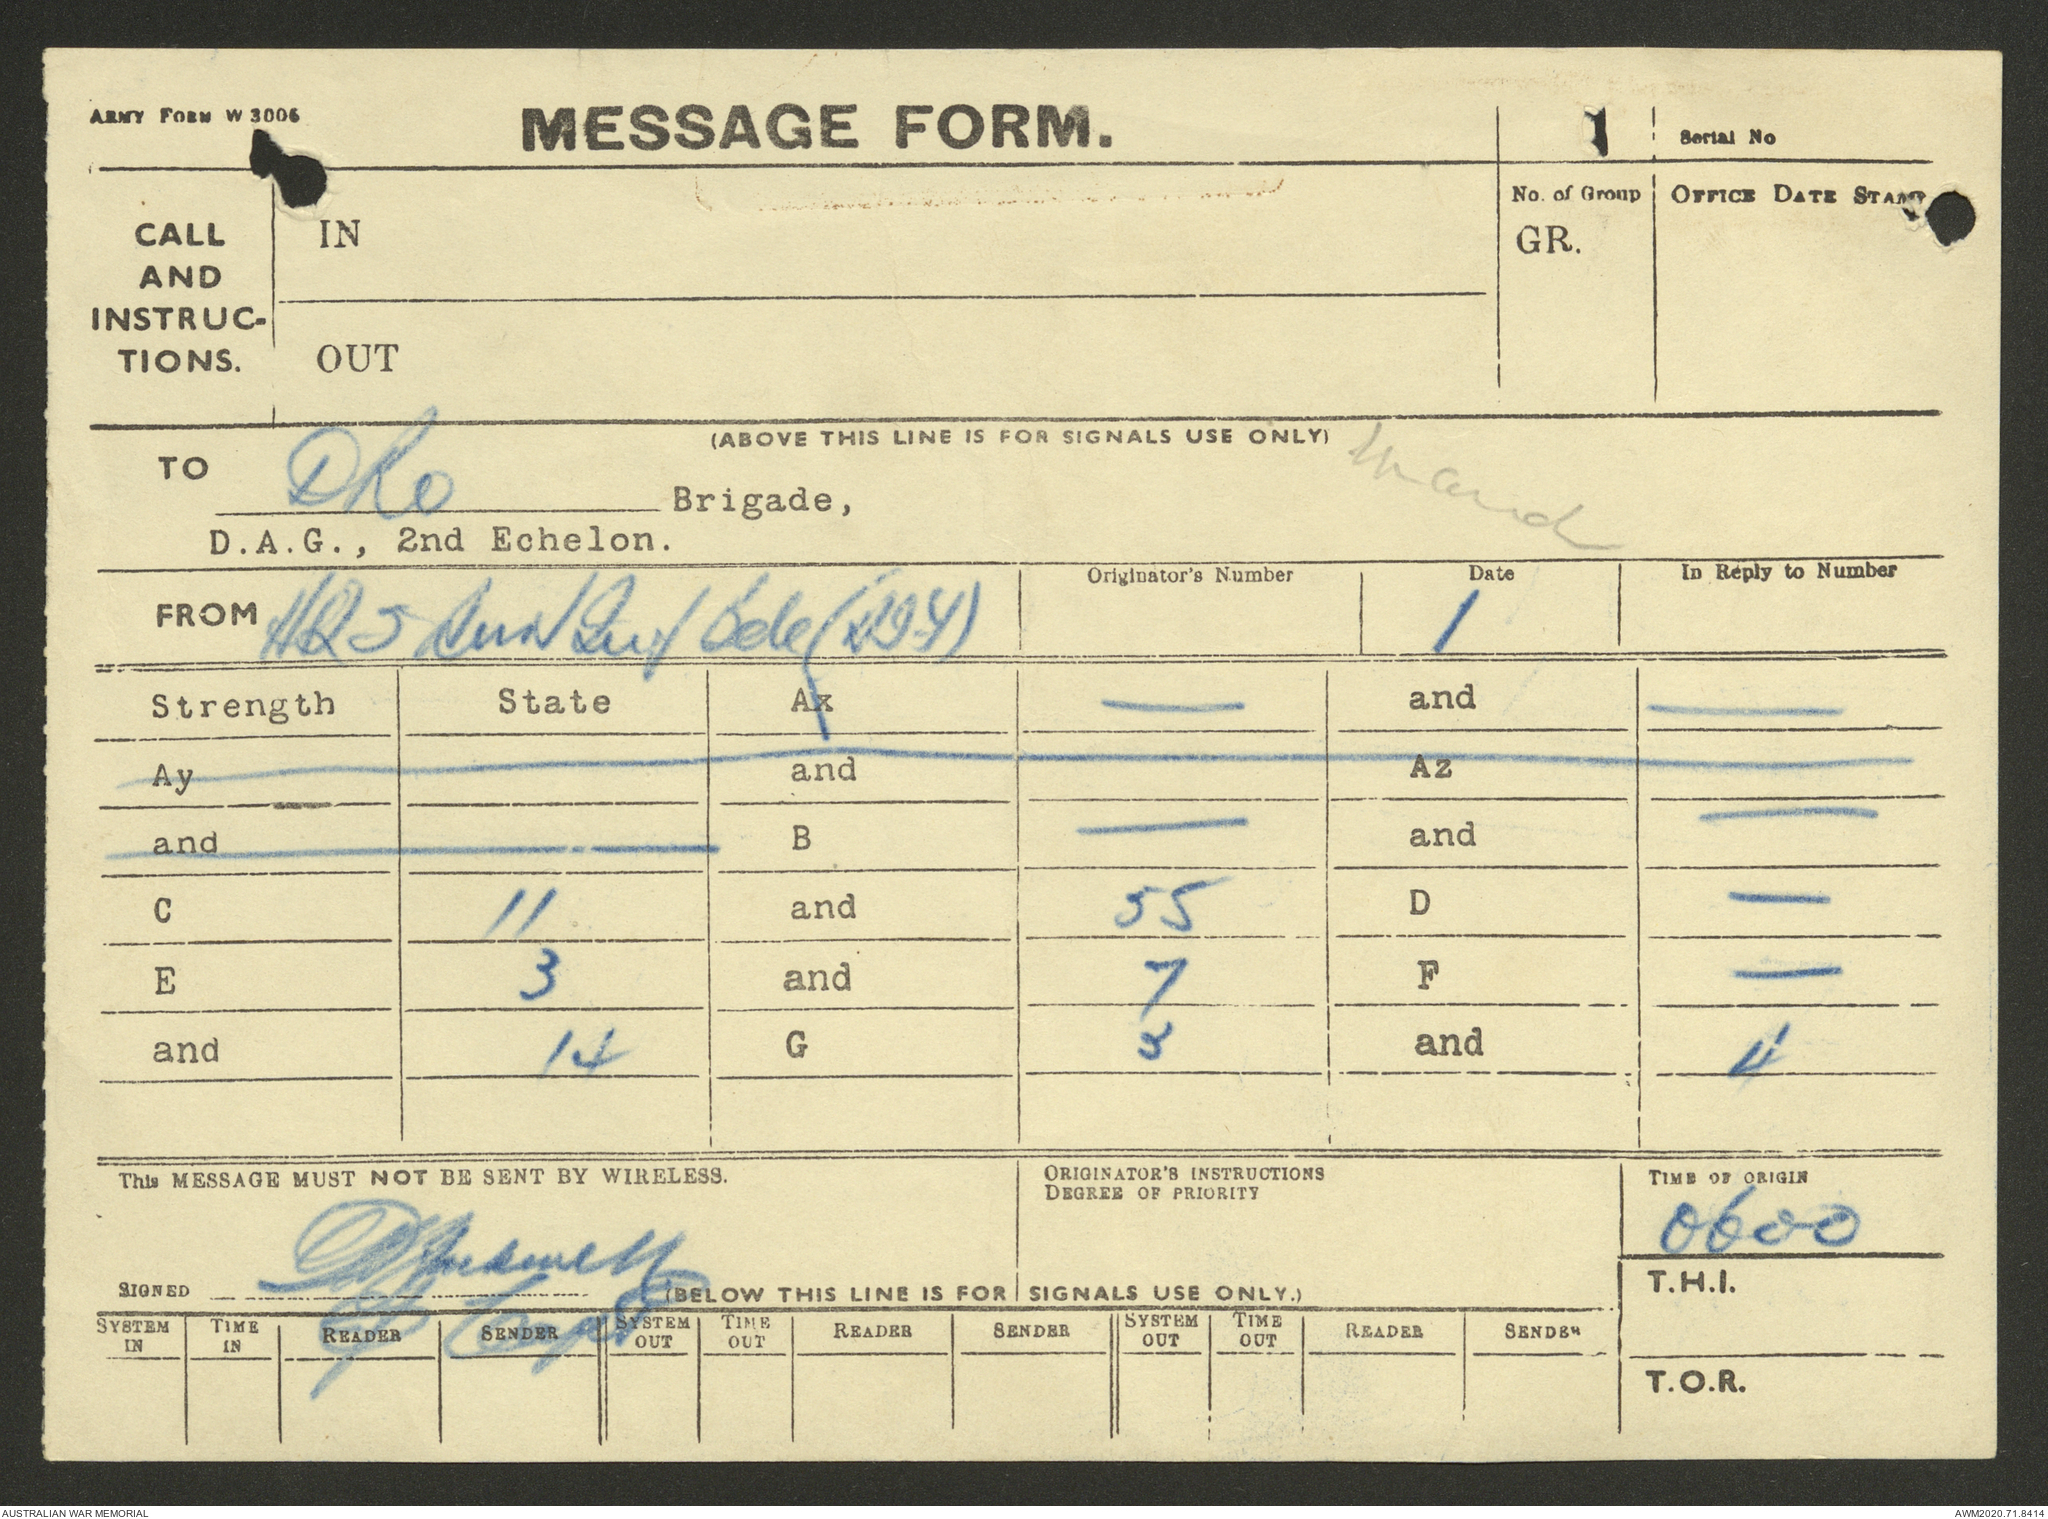 ARMY FORM W 3006
MESSAGE FORM.
Serial No
CALL
AND
INSTRUC-
TIONS.
IN
OUT
No. of Group
GR.
OFFICE DATE STAMP
(ABOVE THIS LINE IS FOR SIGNALS USE ONLY)
TO DRO Brigade,
D.A.G., 2nd Echelon.
FROM HQ 5 Inf Bde
Originator's Number
Date
1
In Reply to Number
Strength State Ax — and —
Ay and Az
and B — and —
C 11 and 55 D —
E 3 and 7 F —
and 14 G 3 and 4
This MESSAGE MUST NOT BE SENT BY WIRELESS.
ORIGINATOR'S INSTRUCTIONS
DEGREE OF PRIORITY
TIME OF ORIGIN
0600
SIGNED
(BELOW THIS LINE IS FOR SIGNALS USE ONLY.)
T.H.I.
SYSTEM IN TIME IN READER SENDER SYSTEM OUT TIME OUT READER SENDER SYSTEM OUT TIME OUT READER SENDER
T.O.R.
AUSTRALIAN WAR MEMORIAL
AWM2020.71.8414